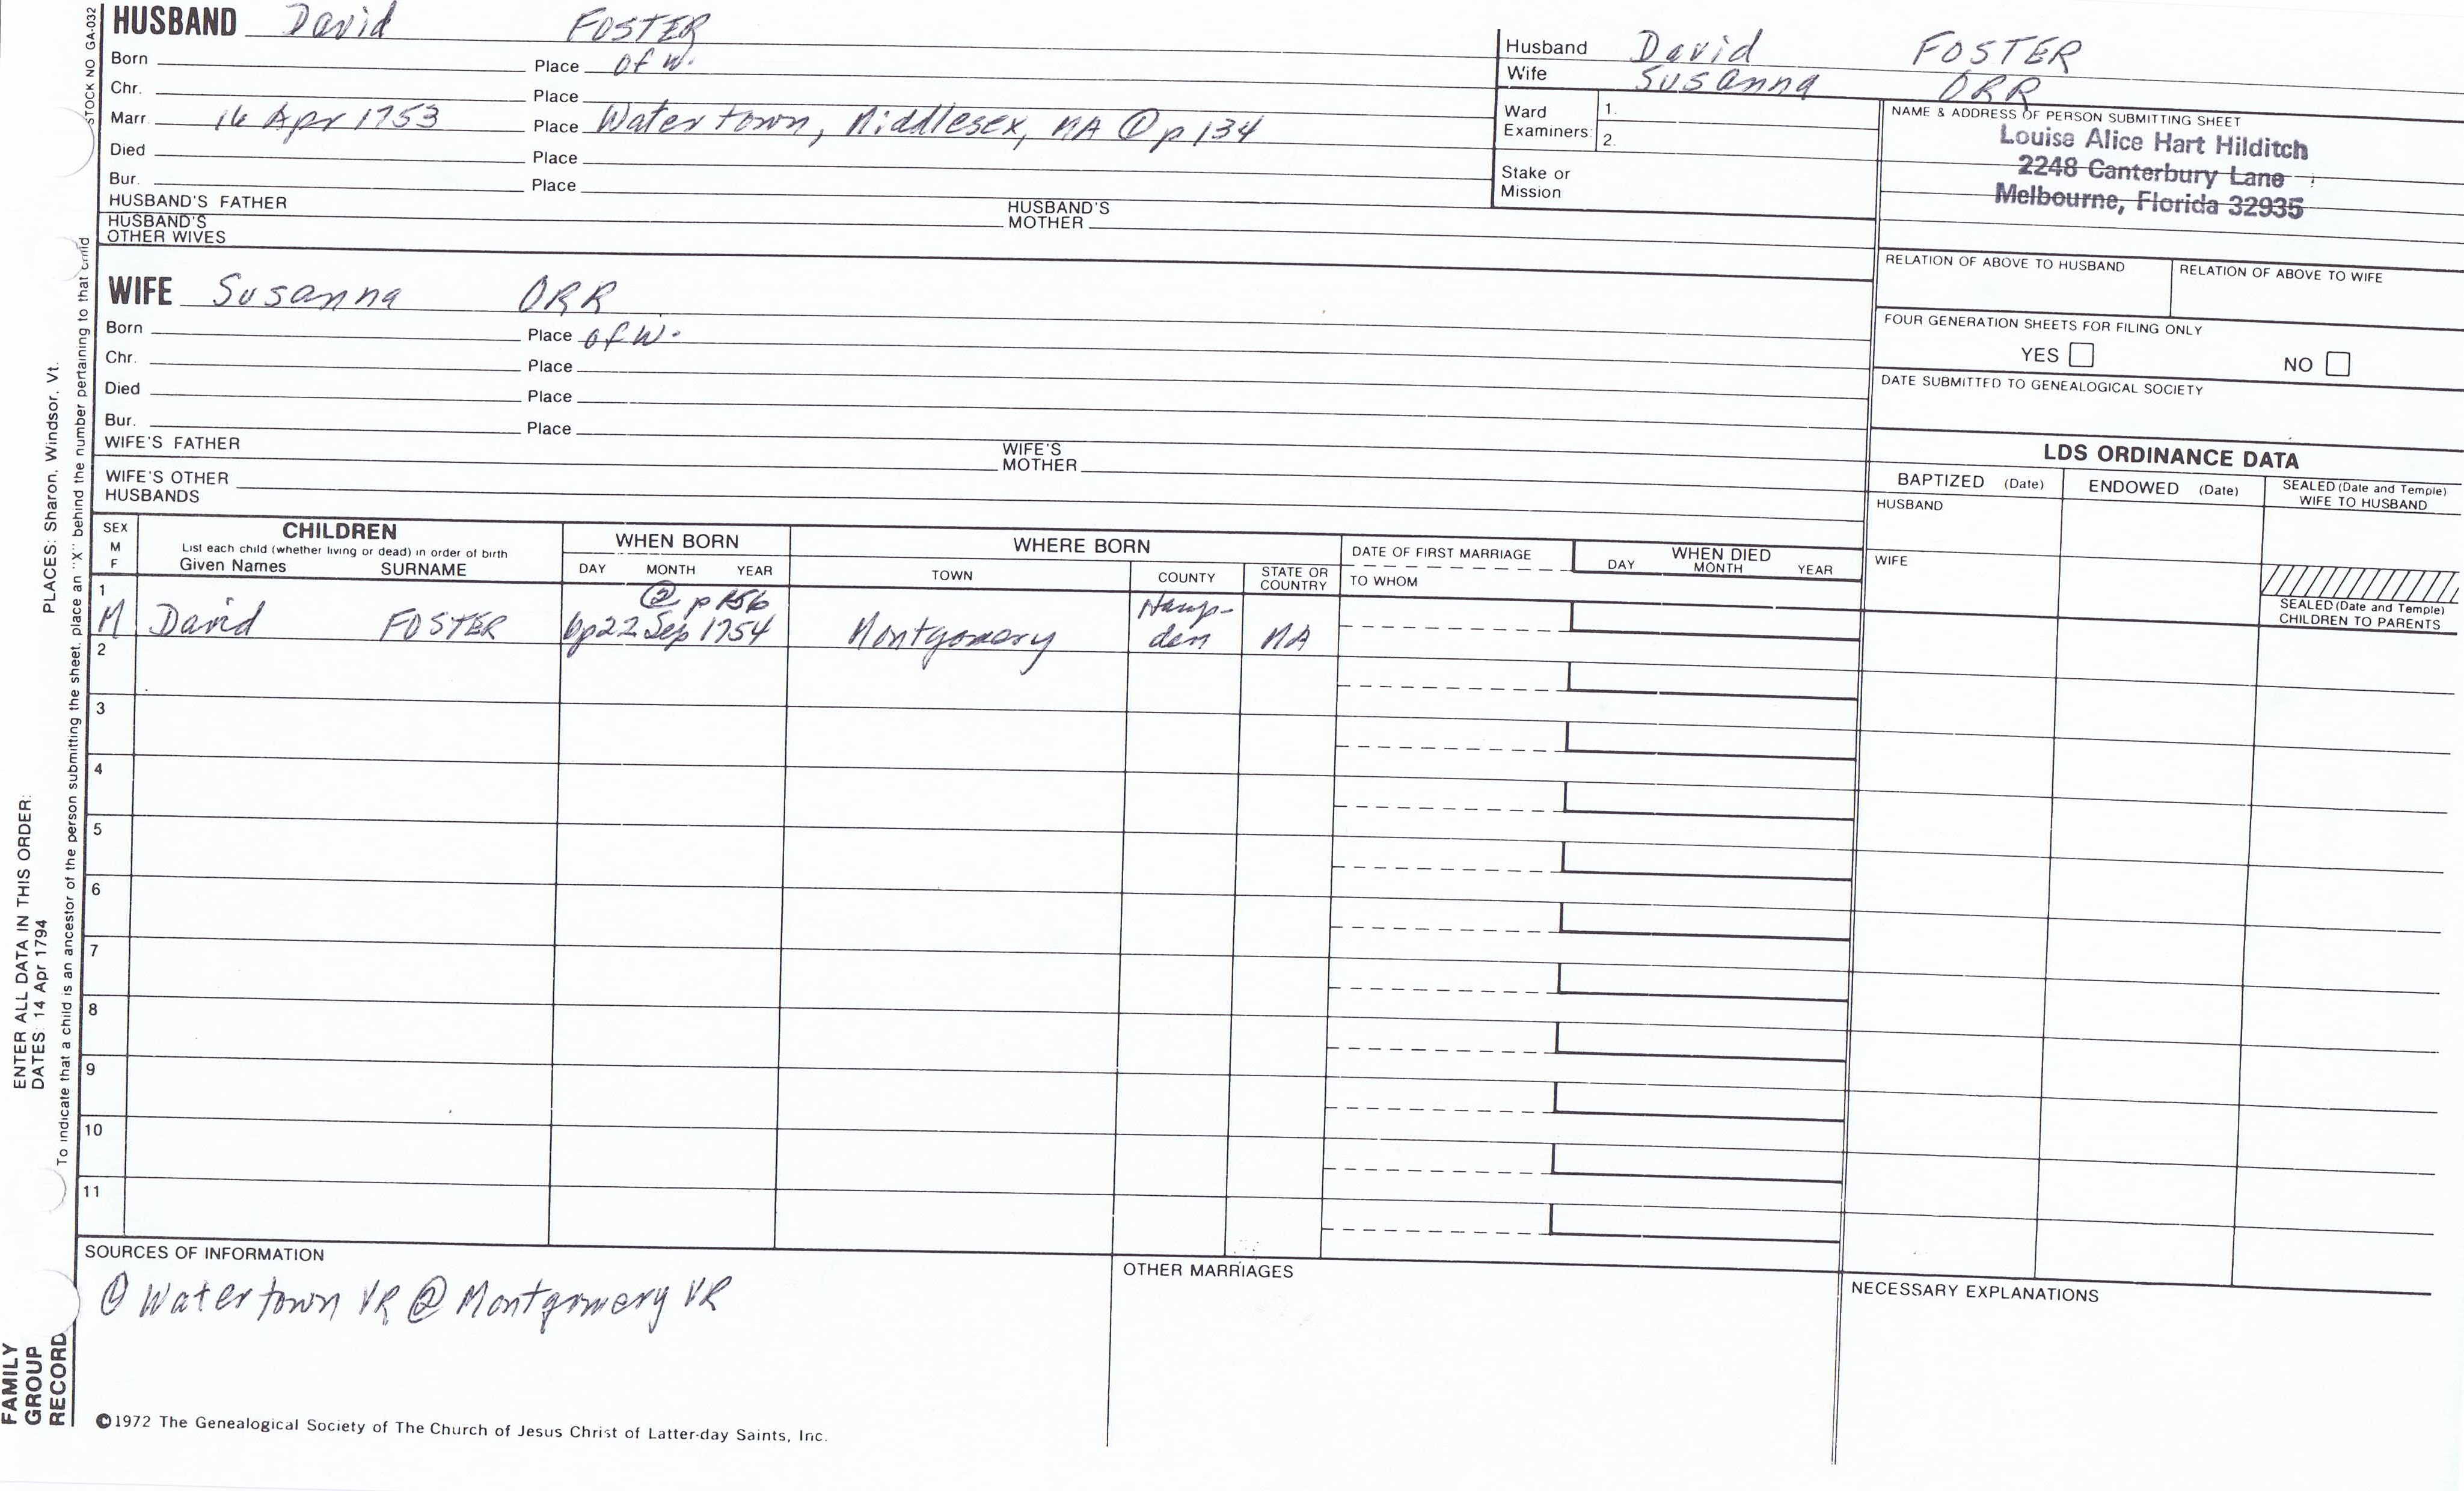 STOCK NO GA-032
HUSBAND David FOSTER
Born Place of W.
Chr. Place
Marr. 16 Apr 1753 Place Watertown, Middlesex, MA ① p 134
Died Place
Bur. Place
HUSBAND'S FATHER HUSBAND'S MOTHER
HUSBAND'S OTHER WIVES
Husband David FOSTER
Wife Susanna ORR
Ward Examiners: 1.
2.
Stake or Mission
NAME & ADDRESS OF PERSON SUBMITTING SHEET
Louise Alice Hart Hilditch
2248 Canterbury Lane
Melbourne, Florida 32935
RELATION OF ABOVE TO HUSBAND RELATION OF ABOVE TO WIFE
FOUR GENERATION SHEETS FOR FILING ONLY
YES NO
DATE SUBMITTED TO GENEALOGICAL SOCIETY
WIFE Susanna ORR
Born Place of W.
Chr. Place
Died Place
Bur. Place
WIFE'S FATHER WIFE'S MOTHER
WIFE'S OTHER HUSBANDS
LDS ORDINANCE DATA
BAPTIZED (Date) ENDOWED (Date) SEALED (Date and Temple) WIFE TO HUSBAND
HUSBAND
WIFE
SEALED (Date and Temple)
CHILDREN TO PARENTS
SEX M F
CHILDREN
List each child (whether living or dead) in order of birth
Given Names SURNAME
WHEN BORN
DAY MONTH YEAR
WHERE BORN
TOWN COUNTY STATE OR COUNTRY
DATE OF FIRST MARRIAGE
TO WHOM
WHEN DIED
DAY MONTH YEAR
② p 156
1 M David FOSTER bp 22 Sep 1754 Montgomery Hamp-
den MA
2
3
4
5
6
7
8
9
10
11
SOURCES OF INFORMATION
① Watertown VR ② Montgomery VR
OTHER MARRIAGES
NECESSARY EXPLANATIONS
©1972 The Genealogical Society of The Church of Jesus Christ of Latter-day Saints, Inc.
FAMILY
GROUP
RECORD
ENTER ALL DATA IN THIS ORDER:
DATES: 14 Apr 1794 PLACES: Sharon, Windsor, Vt.
To indicate that a child is an ancestor of the person submitting the sheet, place an "X" behind the number pertaining to that child